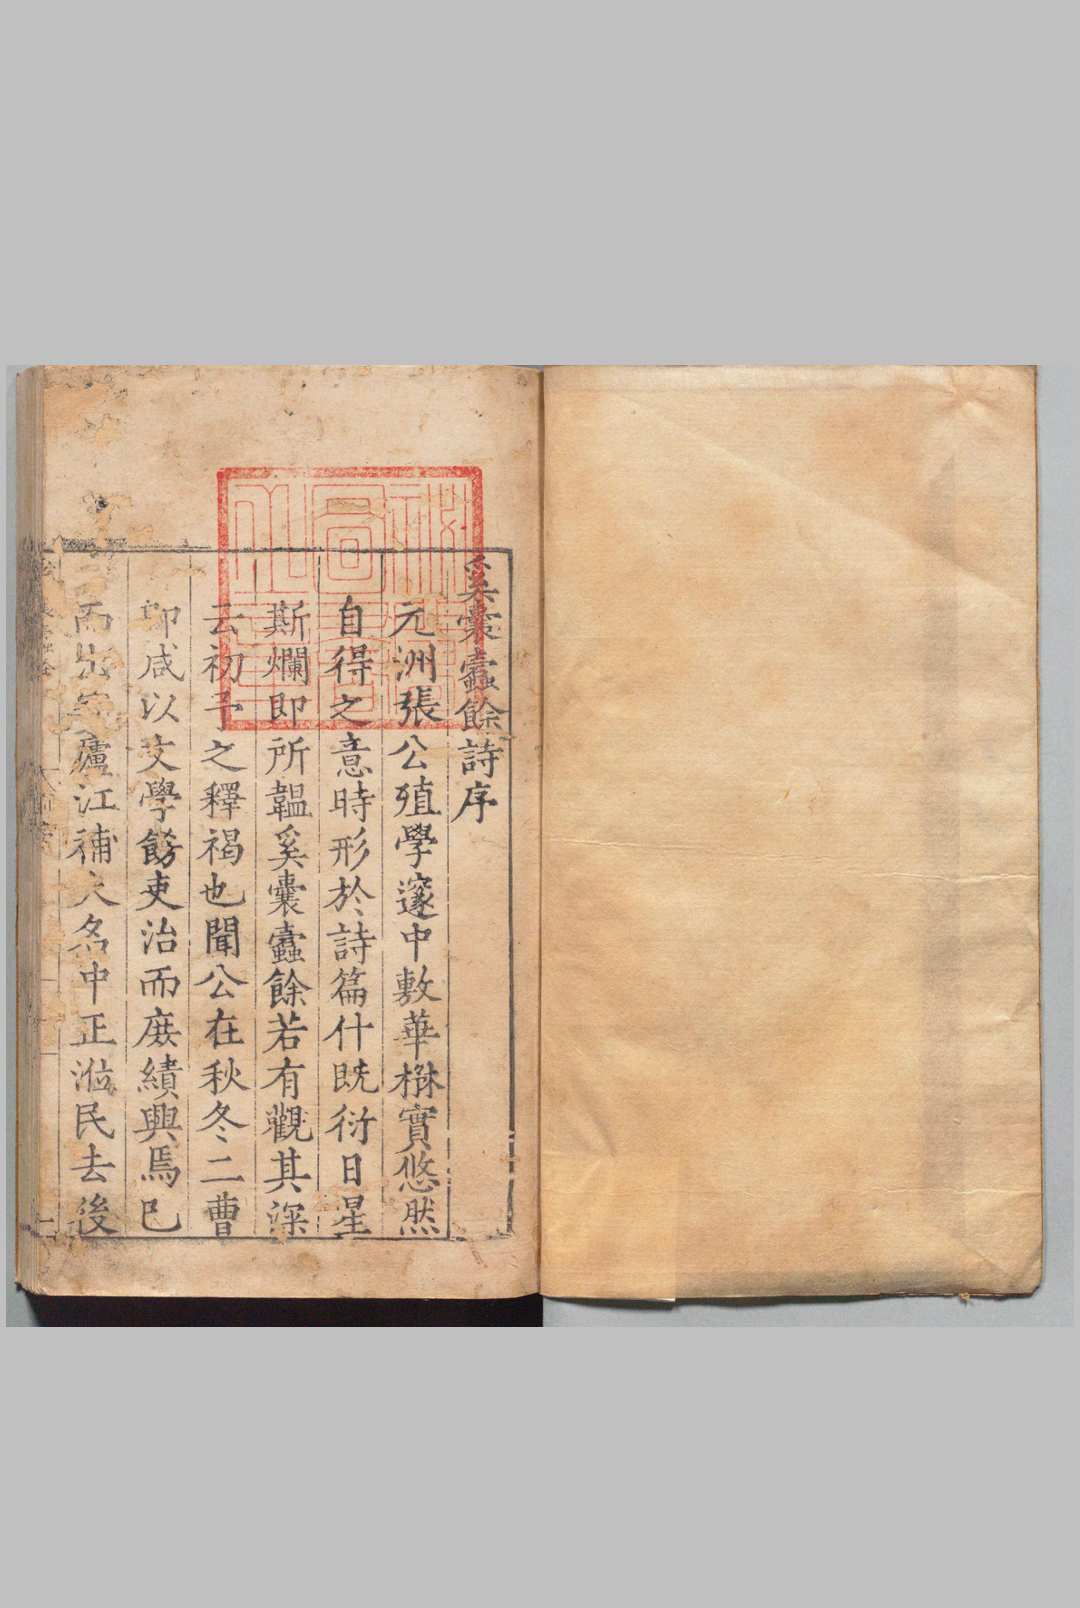 奚囊蠹餘詩序
元洲張公殖學邃中敷華楙實悠然
自得之意時形於詩篇什旣衍日星
斯爛即所韞奚囊蠹餘若有觀其深
云初予之釋褐也聞公在秋冬二曹
卽咸以文學餝吏治而庻績興焉已
而出守廬江補大名中正涖民去後